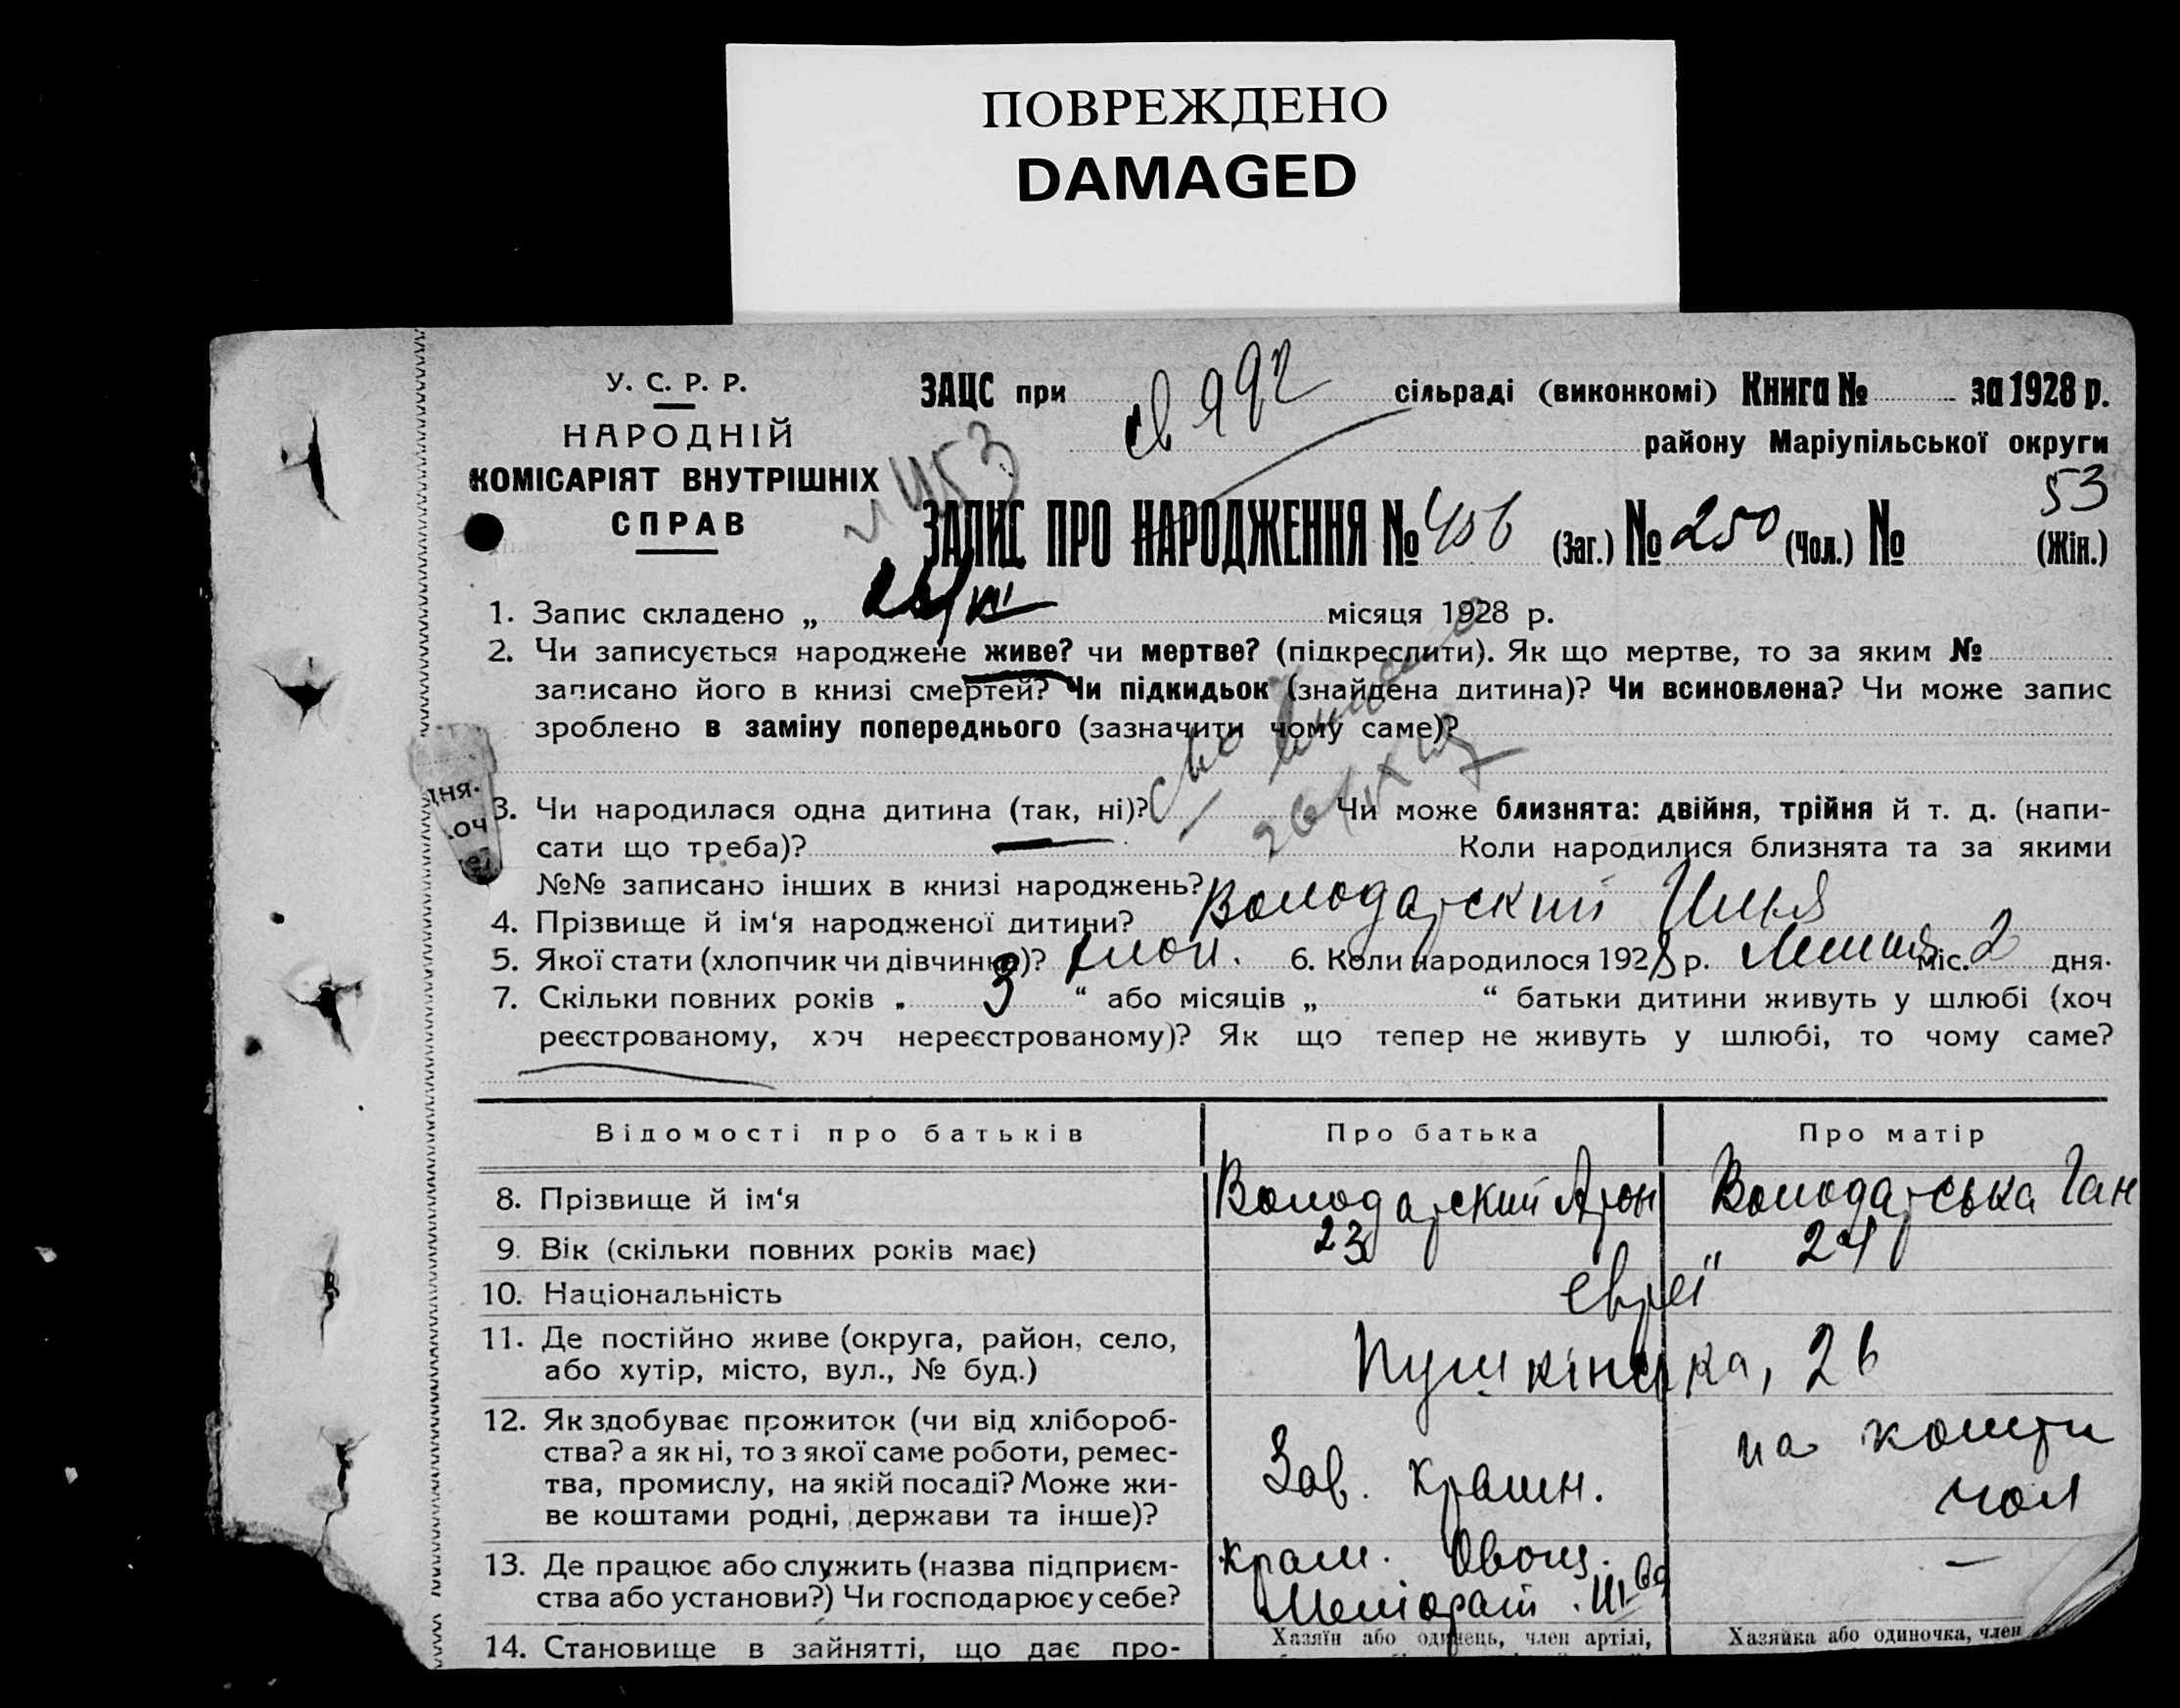 ПОВРЕЖДЕНО
DAMAGED
У. С. Р. Р.
НАРОДНІЙ
КОМІСАРІЯТ ВНУТРІШНІХ
СПРАВ
ЗАЦС при сільраді (виконкомі) Книга № за 1928 р.
району Маріупільської округи
№ 453
53
ЗАПИС ПРО НАРОДЖЕННЯ № 456 (Заг.) № 250 (Чол.) № (Жін.)
1. Запис складено „ місяця 1928 р.
2. Чи записується народжене живе? чи мертве? (підкреслити). Як що мертве, то за яким №
записано його в книзі смертей? Чи підкидьок (знайдена дитина)? Чи всиновлена? Чи може запис
зроблено в заміну попереднього (зазначити чому саме)?
дня.
хоч
3. Чи народилася одна дитина (так, ні)? Чи може близнята: двійня, трійня й т. д. (напи-
сати що треба)? Коли народилися близнята та за якими
№№ записано інших в книзі народжень?
4. Прізвище й ім‘я народженої дитини? Володарский Илья
5. Якої стати (хлопчик чи дівчинка)? хлоп. 6. Коли народилося 1928 р. Липня міс. 2 дня.
7. Скільки повних років „ 3 “ або місяців „ “ батьки дитини живуть у шлюбі (хоч
реєстрованому, хоч нереєстрованому)? Як що тепер не живуть у шлюбі, то чому саме?
Відомості про батьків Про батька Про матір
8. Прізвище й ім‘я Володарский Арон Володарська Ган
9. Вік (скільки повних років має) 23 " 24
10. Національність євреї
11. Де постійно живе (округа, район, село,
або хутір, місто, вул., № буд.) Пушкінська, 26
12. Як здобуває прожиток (чи від хлібороб-
ства? а як ні, то з якої саме роботи, ремес-
тва, промислу, на якій посаді? Може жи-
ве коштами родні, держави та інше)? Зав. крамн. на кошти
чол
13. Де працює або служить (назва підприєм-
ства або установи?) Чи господарює у себе? Крам. Овощ. —
Меліорат.
14. Становище в зайнятті, що дає про- Хазяїн або одинець, член артілі, Хазяйка або одиночка, член